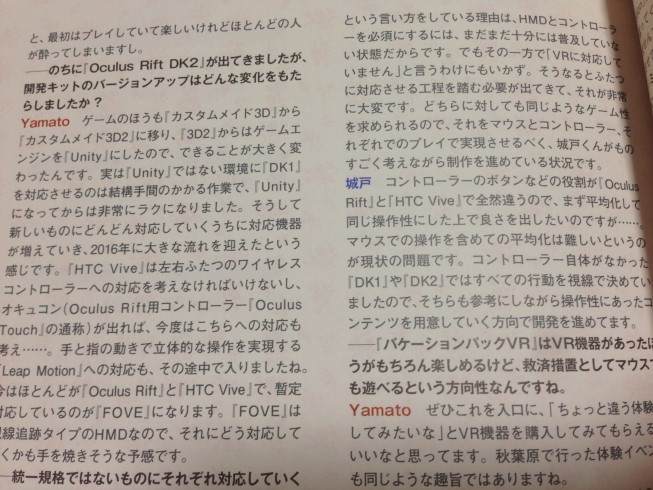 と、最初はプレイしていて楽しいけれどほとんどの人
が酔ってしまいますし。
――のちに『Oculus Rift DK2』が出てきましたが、
開発キットのバージョンアップはどんな変化をもた
らしましたか？
Yamato　ゲームのほうも『カスタムメイド3D』から
『カスタムメイド3D2』に移り、『3D2』からはゲームエ
ンジンを『Unity』にしたので、できることが大きく変
わったんです。実は『Unity』ではない環境に『DK1』
を対応させるのは結構手間のかかる作業で、『Unity』
になってからは非常にラクになりました。そうして
新しいものにどんどん対応していくうちに対応機器
が増えていき、2016年に大きな流れを迎えたという
感じです。『HTC Vive』は左右ふたつのワイヤレス
コントローラーへの対応を考えなければいけないし、
オキュコン(Oculus Rift用コントローラー『Oculus
Touch』の通称)が出れば、今度はこちらへの対応も
考え……。手と指の動きで立体的な操作を実現する
『Leap Motion』への対応も、その途中で入りましたね。
今はほとんどが『Oculus Rift』と『HTC Vive』で、暫定
対応しているのが『FOVE』になります。『FOVE』は
視線追跡タイプのHMDなので、それにどう対応して
いくかも手を焼きそうな予感です。
――統一規格ではないものにそれぞれ対応していく
という言い方をしている理由は、HMDとコントローラ
ーを必須にするには、まだまだ十分には普及していな
い状態だからです。でもその一方で「VRに対応して
いません」と言うわけにもいかず。そうなるとふたつ
に対応させる工程を踏む必要が出てきて、それが非常
に大変です。どちらに対しても同じようなゲーム性
を求められるので、それをマウスとコントローラー、そ
れぞれでのプレイで実現させるべく、城戸くんがもの
すごく考えながら制作を進めている状況です。
城戸　コントローラーのボタンなどの役割が『Oculus
Rift』と『HTC Vive』で全然違うので、まず平均化して
同じ操作性にした上で良さを出したいのですが……。
マウスでの操作を含めての平均化は難しいというの
が現状の問題です。コントローラー自体がなかった
『DK1』や『DK2』ではすべての行動を視線で決めてい
ましたので、そちらも参考にしながら操作性にあったコ
ンテンツを用意していく方向で開発を進めてます。
――『バケーションパックVR』はVR機器があったほ
うがもちろん楽しめるけど、救済措置としてマウスで
も遊べるという方向性なんですね。
Yamato　ぜひこれを入口に、「ちょっと違う体験
してみたいな」とVR機器を購入してみてもらえる
いいなと思ってます。秋葉原で行った体験イベン
も同じような趣旨ではありますね。